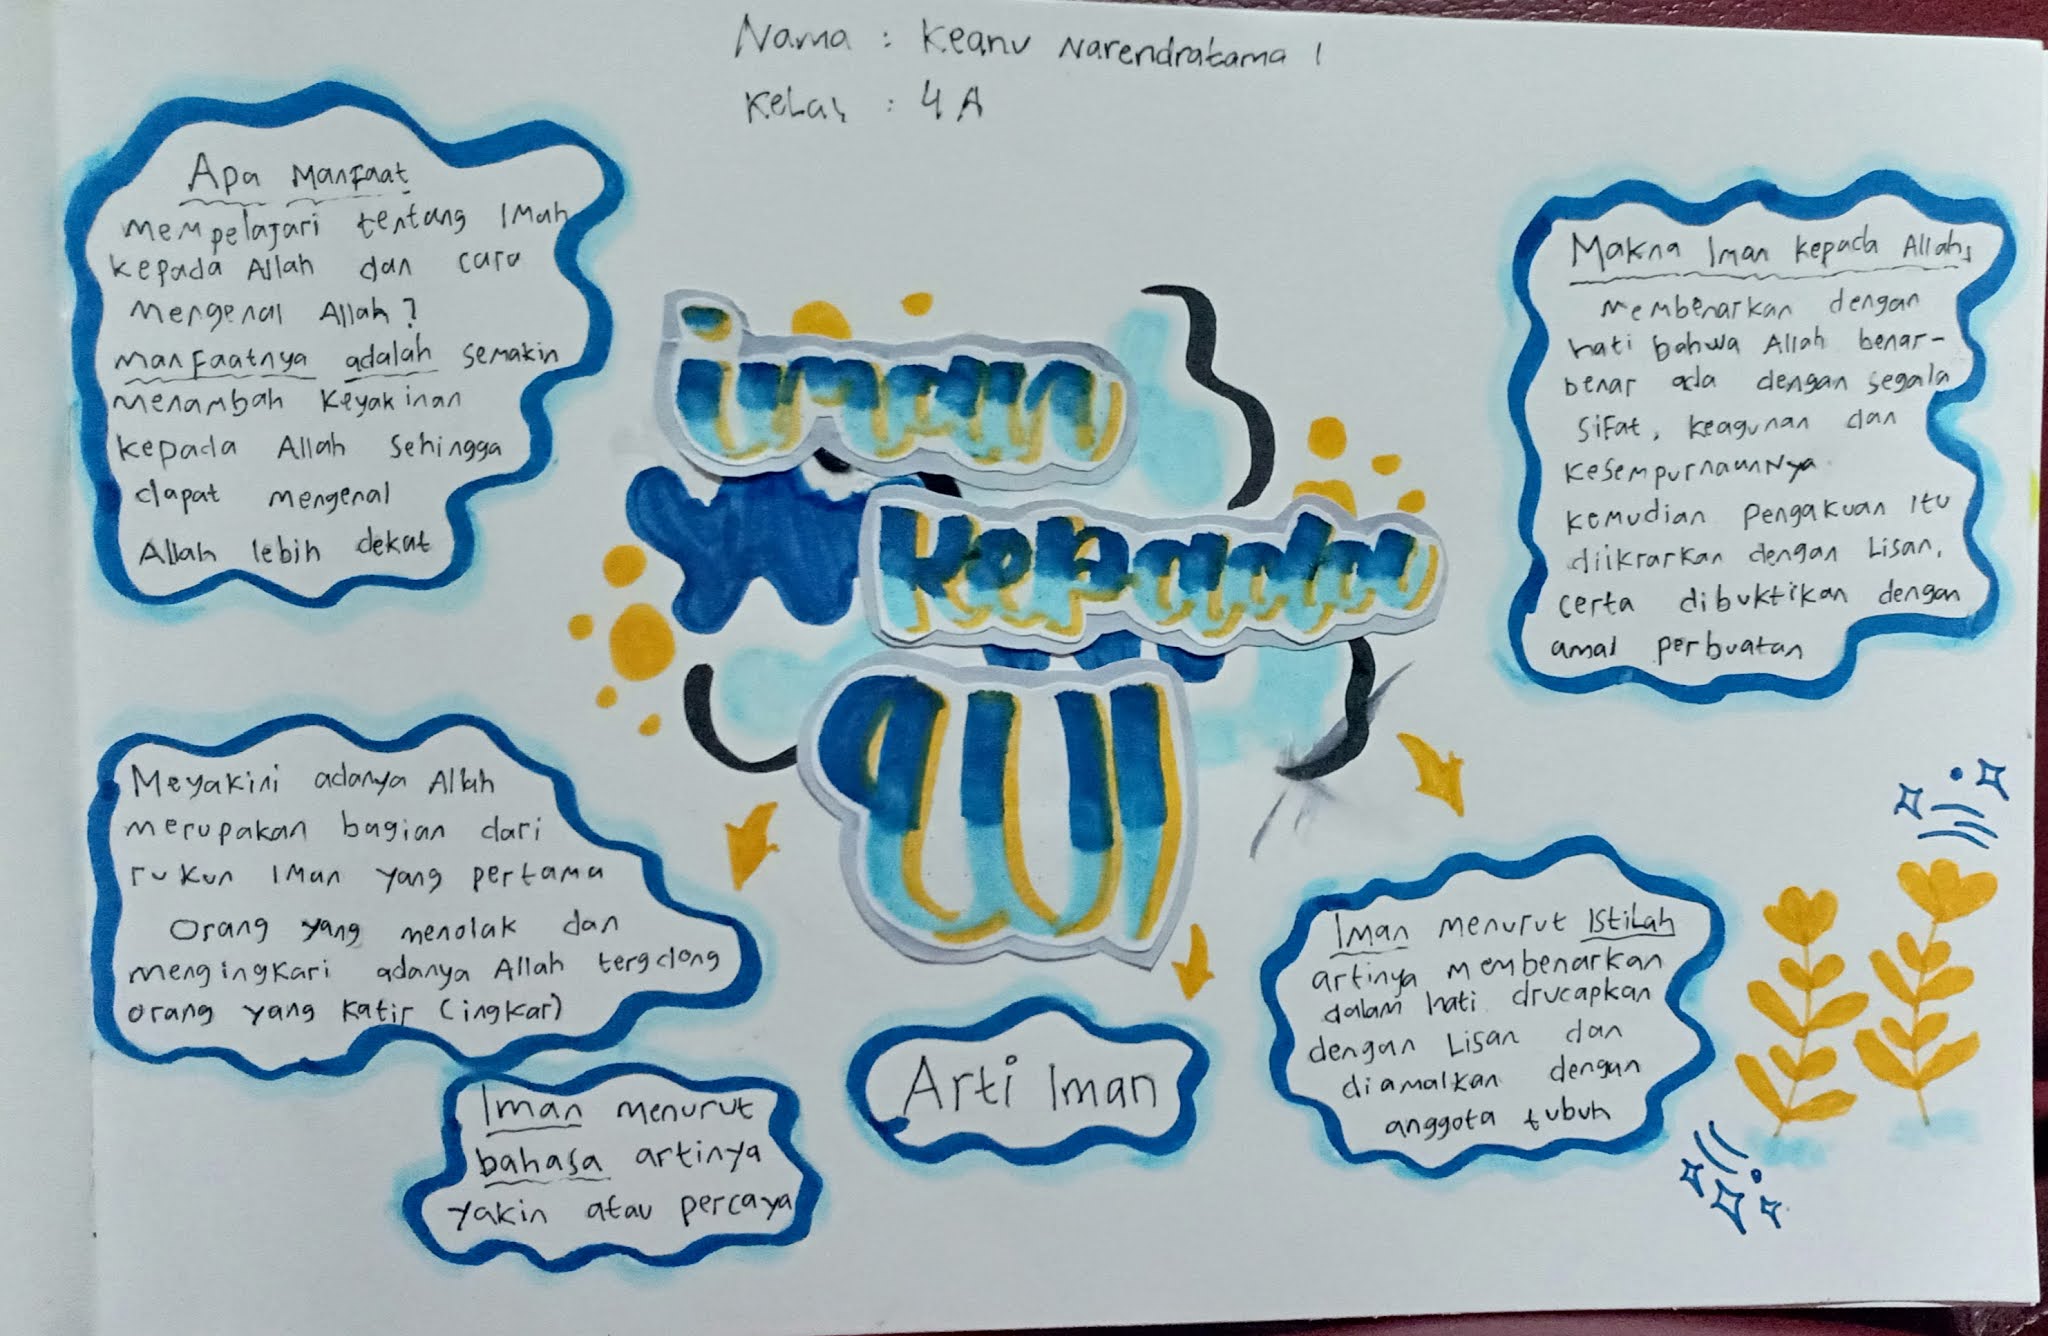 Nama : Keanu Narendratama I
Kelas : 4 A
Apa Manfaat
mempelajari tentang Iman
kepada Allah dan cara
mengenal Allah?
manfaatnya adalah semakin
menambah keyakinan
kepada Allah sehingga
dapat mengenal
Allah lebih dekat
iman
kepada
الله
Makna Iman kepada Allah,
membenarkan dengan
hati bahwa Allah benar-
benar ada dengan segala
sifat, keagunan dan
kesempurnaannya
kemudian pengakuan itu
diikrarkan dengan Lisan,
certa dibuktikan dengan
amal perbuatan
Meyakini adanya Allah
merupakan bagian dari
rukun Iman yang pertama
Orang yang menolak dan
mengingkari adanya Allah tergolong
orang yang kafir (ingkar)
Iman menurut
bahasa artinya
yakin atau percaya
Arti Iman
Iman menurut Istilah
artinya membenarkan
dalam hati drucapkan
dengan Lisan dan
diamalkan dengan
anggota tubuh